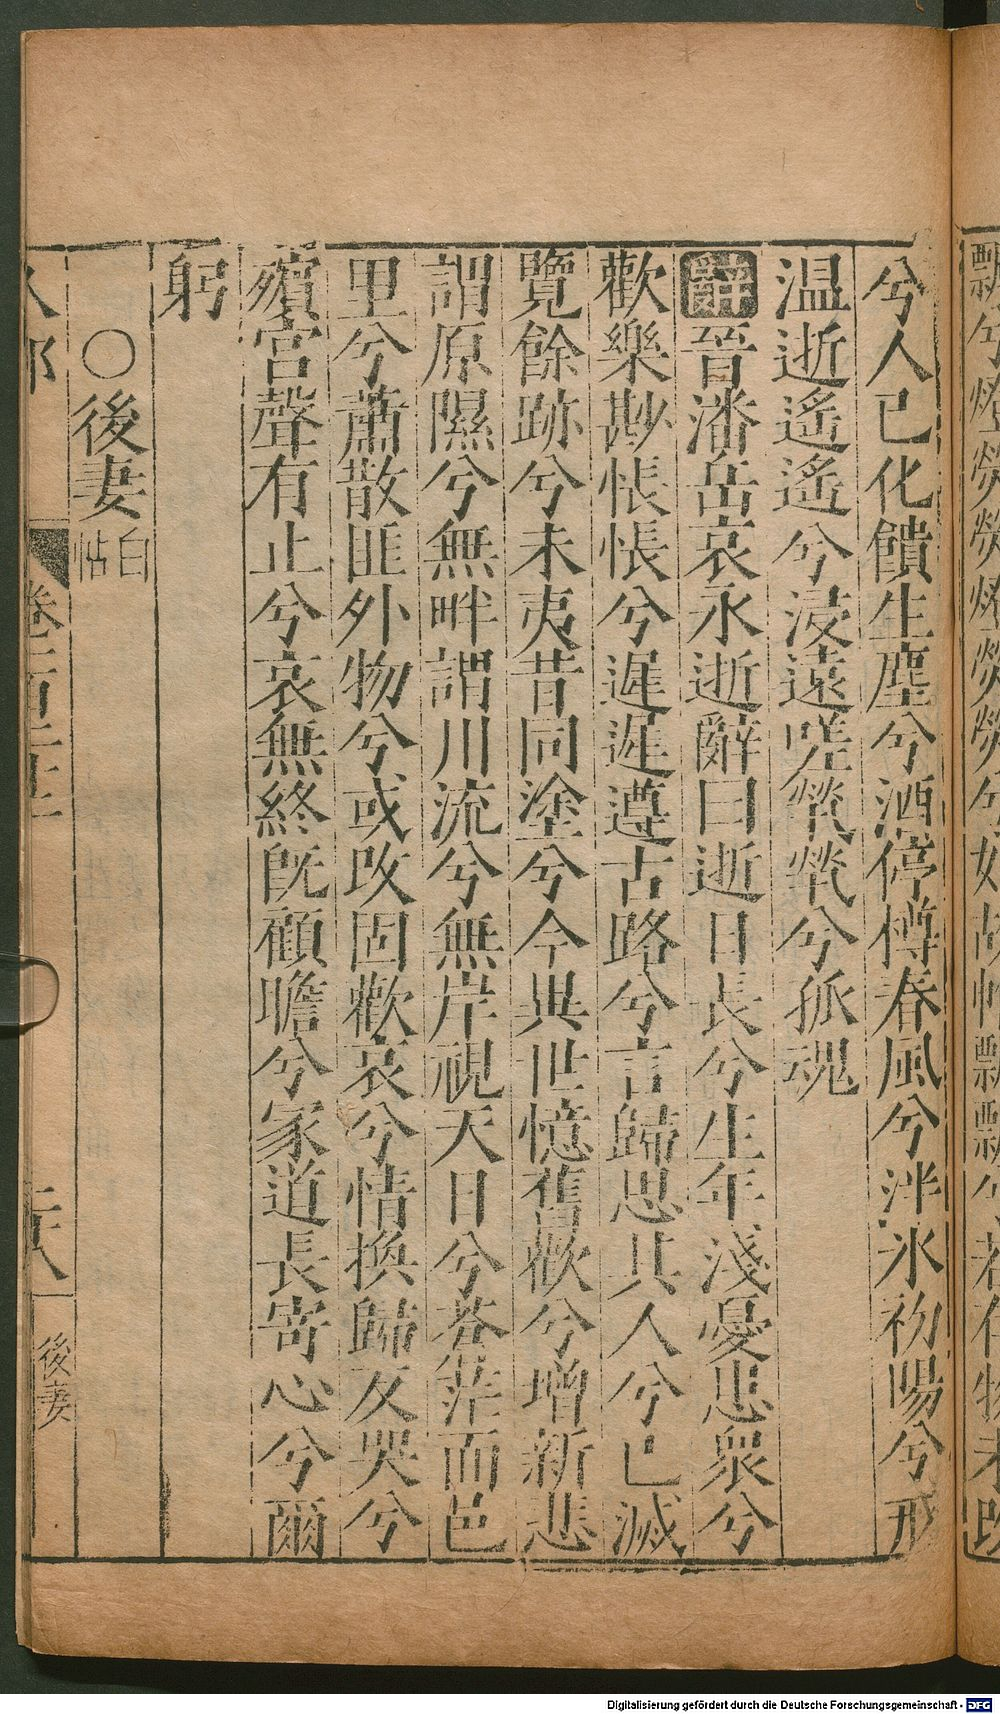 飄兮燈熒熒
兮人已化饋生塵兮酒停樽春風兮泮氷初陽兮形
温逝遙遙兮浸遠嗟煢煢兮孤魂
辭晉潘岳哀永逝辭曰逝日長兮生年淺憂患衆兮
歡樂尠悵悵兮遲遲遵古路兮言歸思其人兮已滅
覽餘跡兮未夷昔同塗兮今異世憶舊歡兮增新悲
謂原隰兮無畔謂川流兮無岸視天日兮蒼茫面邑
里兮蕭散匪外物兮或改固歡哀兮情換歸反哭兮
殯宮聲有止兮哀無終既顧瞻兮家道長寄心兮爾
躬
○後妻白帖
人部 卷二百二十 二十八 後妻
Digitalisierung gefördert durch die Deutsche Forschungsgemeinschaft - DFG